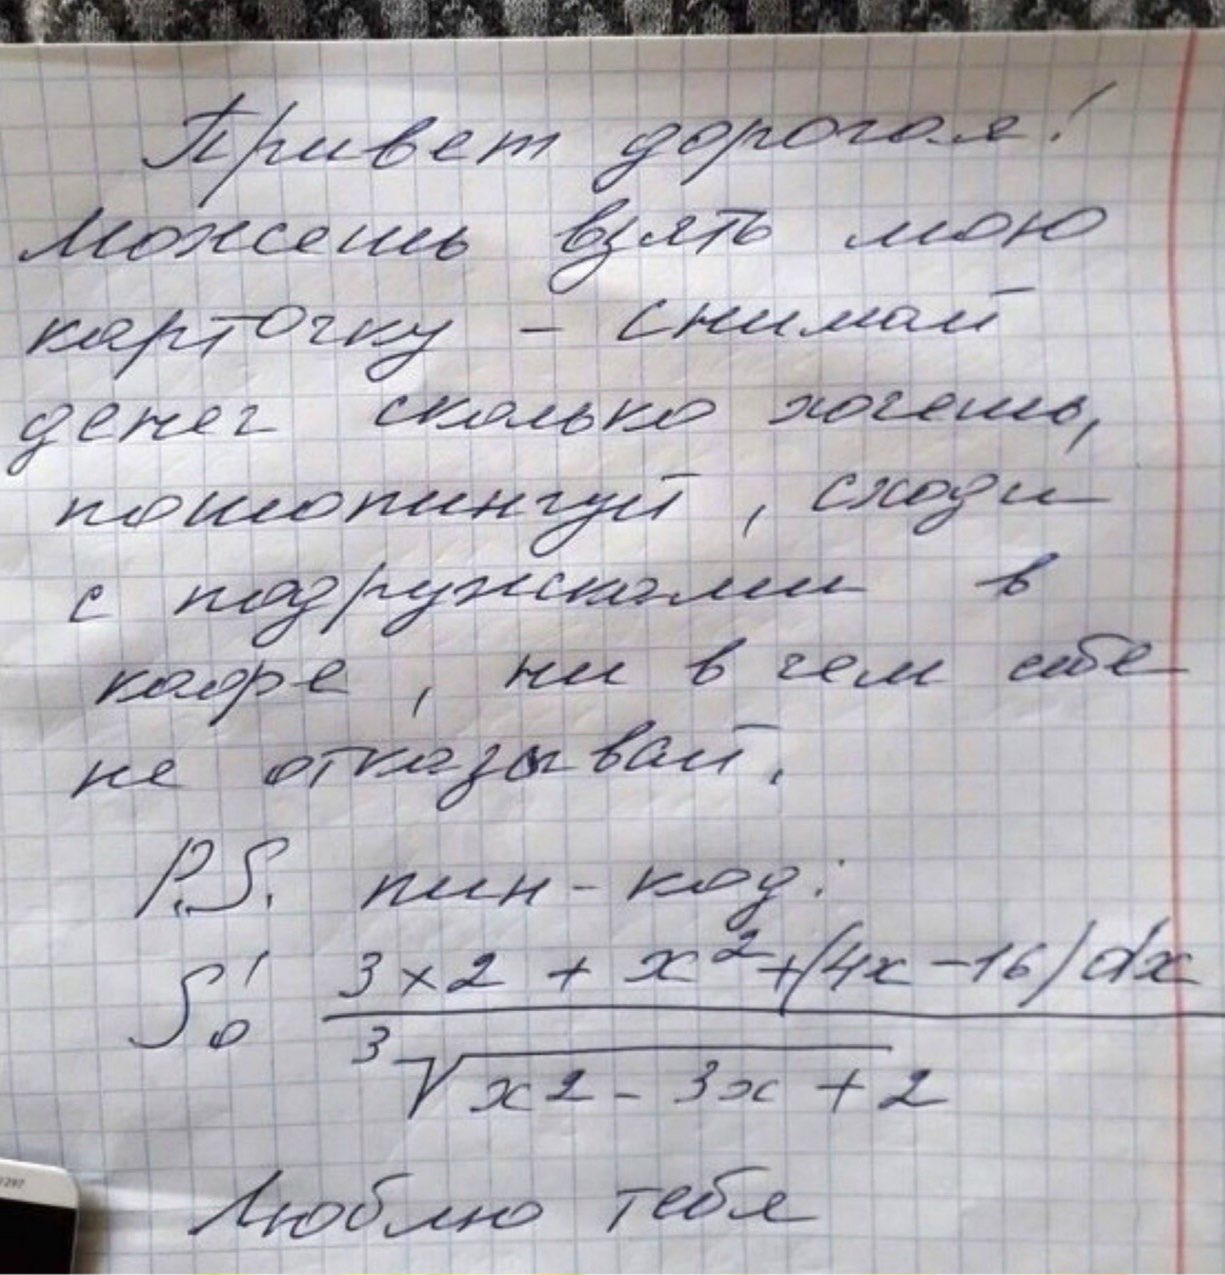 Привет дорогая!
Можешь взять мою
карточку - снимай
денег сколько хочешь,
пошопингуй, сходи
с подружками в
кафе, ни в чем себе
не отказывай.
P.S. пин-код:
∫₀¹ (3 × 2 + x² + (4x - 16) dx) / (³√(x2 - 3x) + 2)
Люблю тебя
1297